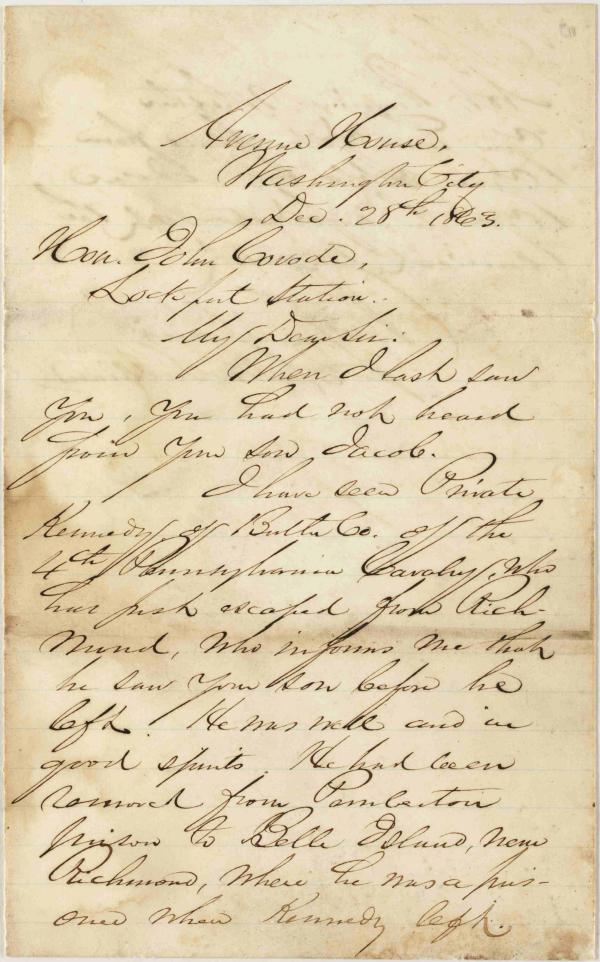 Avenue House,
Washington City
Dec. 28th 1863.
Hon. John Covode,
Lockport Station.
My Dear Sir:
When I last saw
you, you had not heard
from your son Jacob.
I have seen Private
Kennedy, of Butler Co. of the
4th Pennsylvania Cavalry, who
has just escaped from Rich-
mond, who informs me that
he saw your son before he
left. He was well and in
good spirits. He had been
removed from Pemberton
prison to Belle Island, near
Richmond, where he was a pris-
oner when Kennedy left.